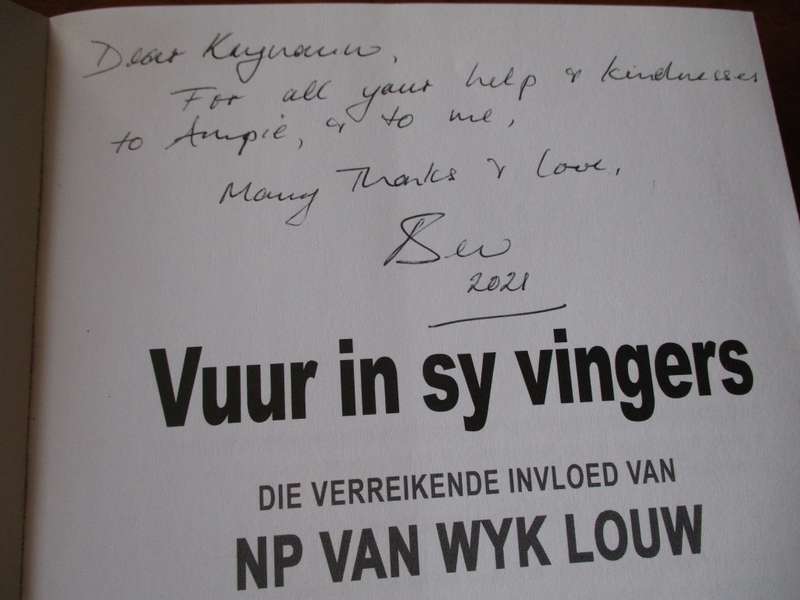 Dear Kaynann,
For all your help & kindnesses
to Ampie, & to me,
Many Thanks & love,
Bev
2021
Vuur in sy vingers
DIE VERREIKENDE INVLOED VAN
NP VAN WYK LOUW